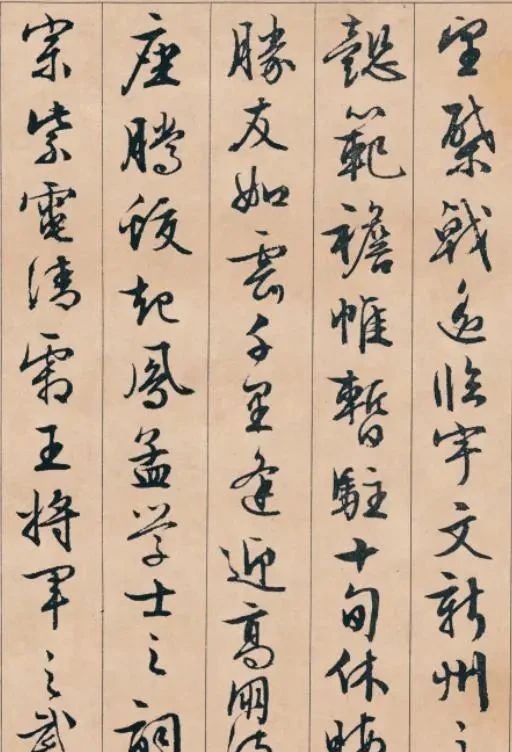 望棨戟遥臨宇文新州之
懿範襜帷暫駐十旬休暇
勝友如雲千里逢迎高朋滿
座騰蛟起鳳孟學士之詞
宗紫電清霜王將軍之武